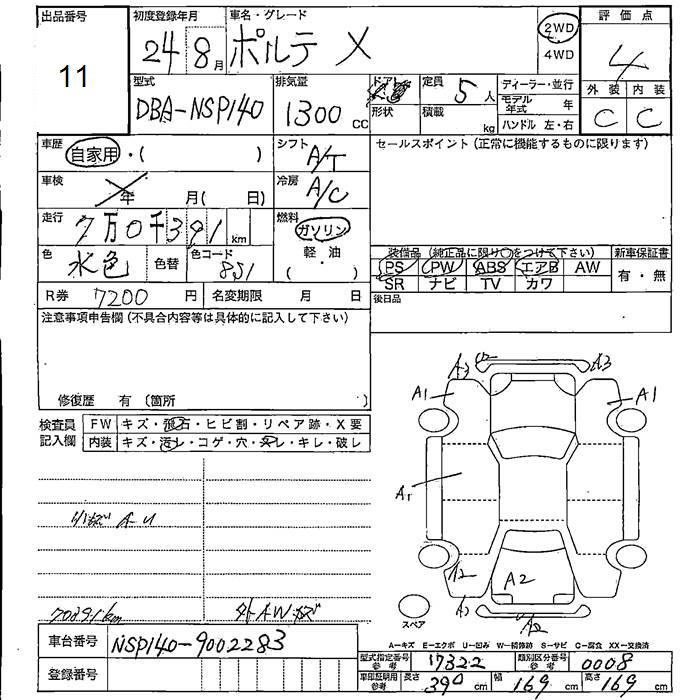 出品番号
11
初度登録年月
24 8月
車名・グレード
ポルテ X
2WD
4WD
評価点
4
型式
DBA-NSP140
排気量
1300 CC
ドア
形状
定員
5人
積載
kg
ディーラー・並行
モデル年式 年
ハンドル 左・右
外装 内装
C C
車歴
自家用・( )
シフト
A/T
セールスポイント(正常に機能するものに限ります)
車検
年 月( 日)
冷房
A/C
走行
7万0千391km
燃料
ガソリン
軽・油
( )
色
水色
色替
色コード
8S1
装備品(純正品に限り○をつけて下さい)
新車保証書
PS PW ABS エアB AW
SR ナビ TV カワ
有・無
R券 7200円
名変期限 月 日
後日品
注意事項申告欄(不具合内容等は具体的に記入して下さい)
修復歴 有 〔箇所 〕
検査員
記入欄
FW キズ・飛石・ヒビ割・リペア跡・X要
内装 キズ・汚レ・コゲ・穴・スレ・キレ・破レ
A3 A3
A1 A1
A1
A2
A2
A2
A2
スペア
70391km
外AWキズ
A-キズ E-エクボ U-凹み W-補修跡 S-サビ C-腐食 XX-交換済
車台番号
NSP140-9002283
登録番号
型式指定番号
参考
17322
類別区分番号
参考
0008
車印証明用
参考
長さ 390cm 幅 169cm 高さ 169cm